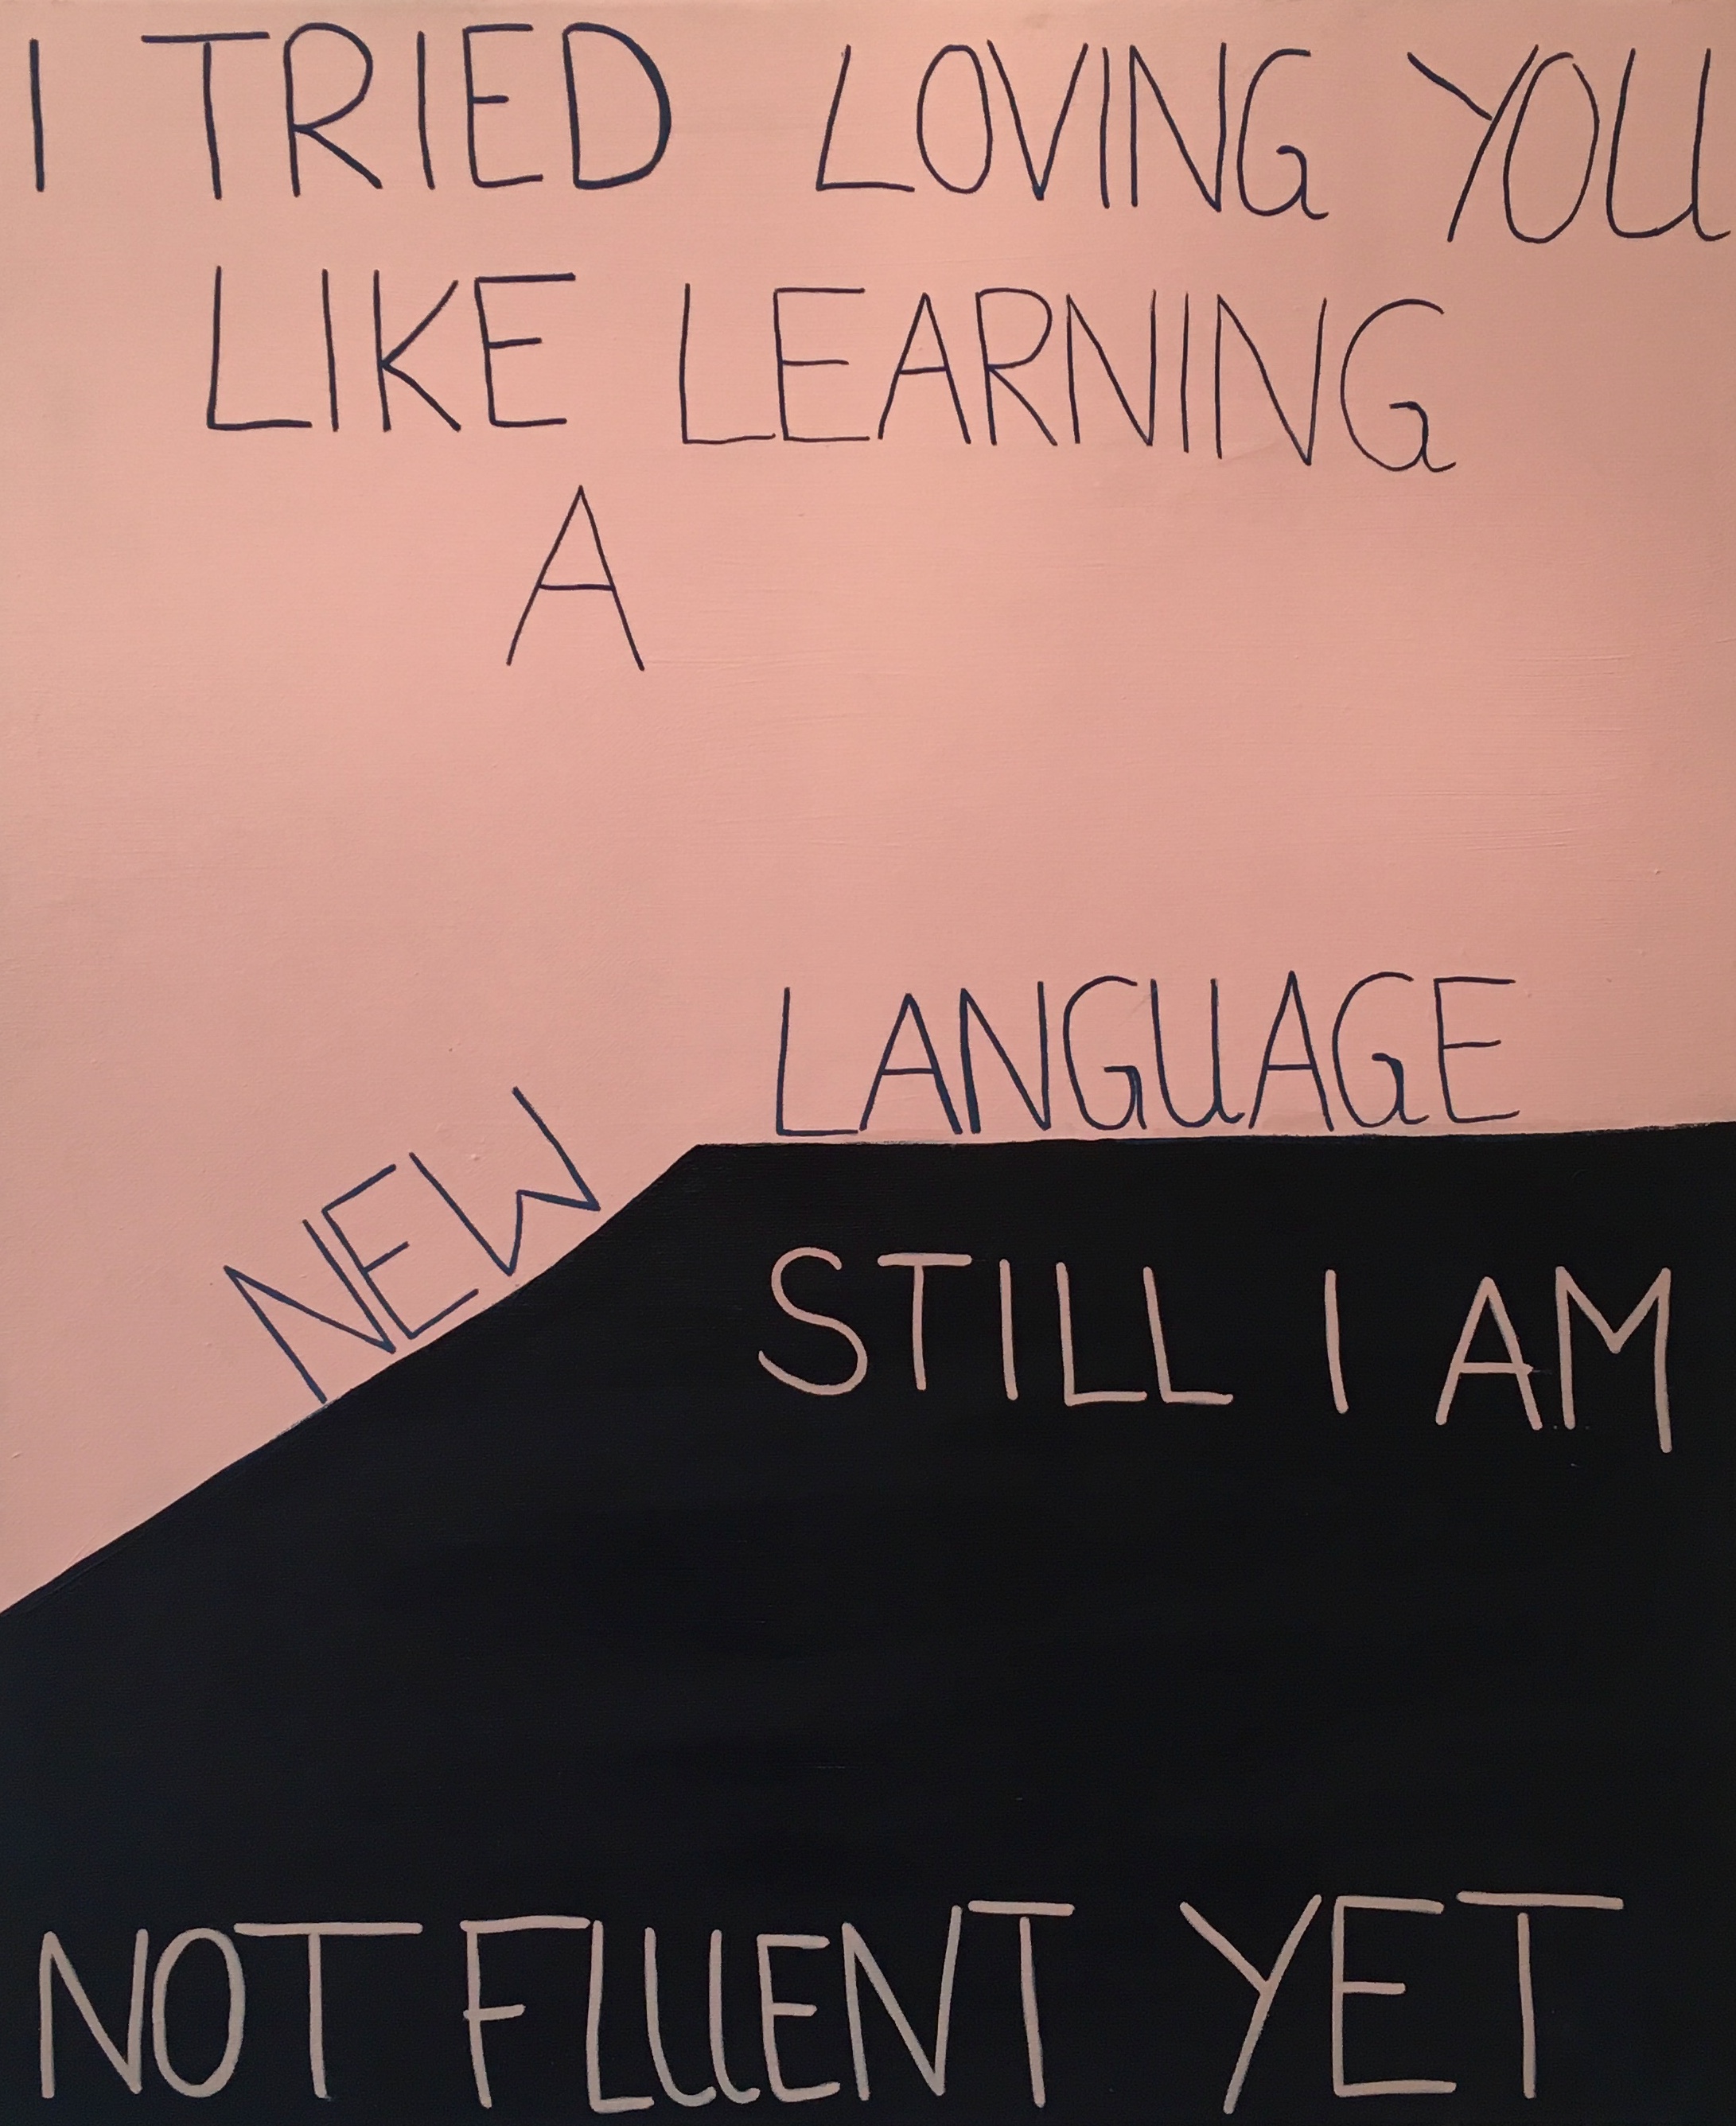 I TRIED LOVING YOU
LIKE LEARNING
A
NEW
LANGUAGE
STILL I AM
NOT FLUENT YET